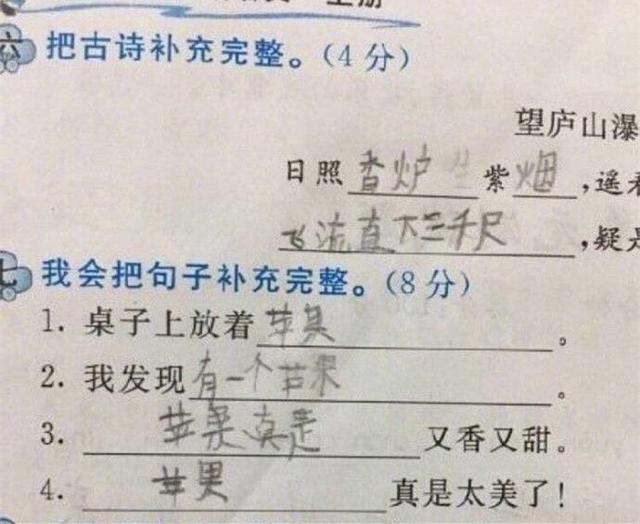 上册
六 把古诗补充完整。(4分)
望庐山瀑
日照香炉生紫烟,遥看
飞流直下三千尺,疑是
七 我会把句子补充完整。(8分)
1. 桌子上放着苹果。
2. 我发现有一个苹果。
3. 苹果真是又香又甜。
4. 苹果真是太美了!